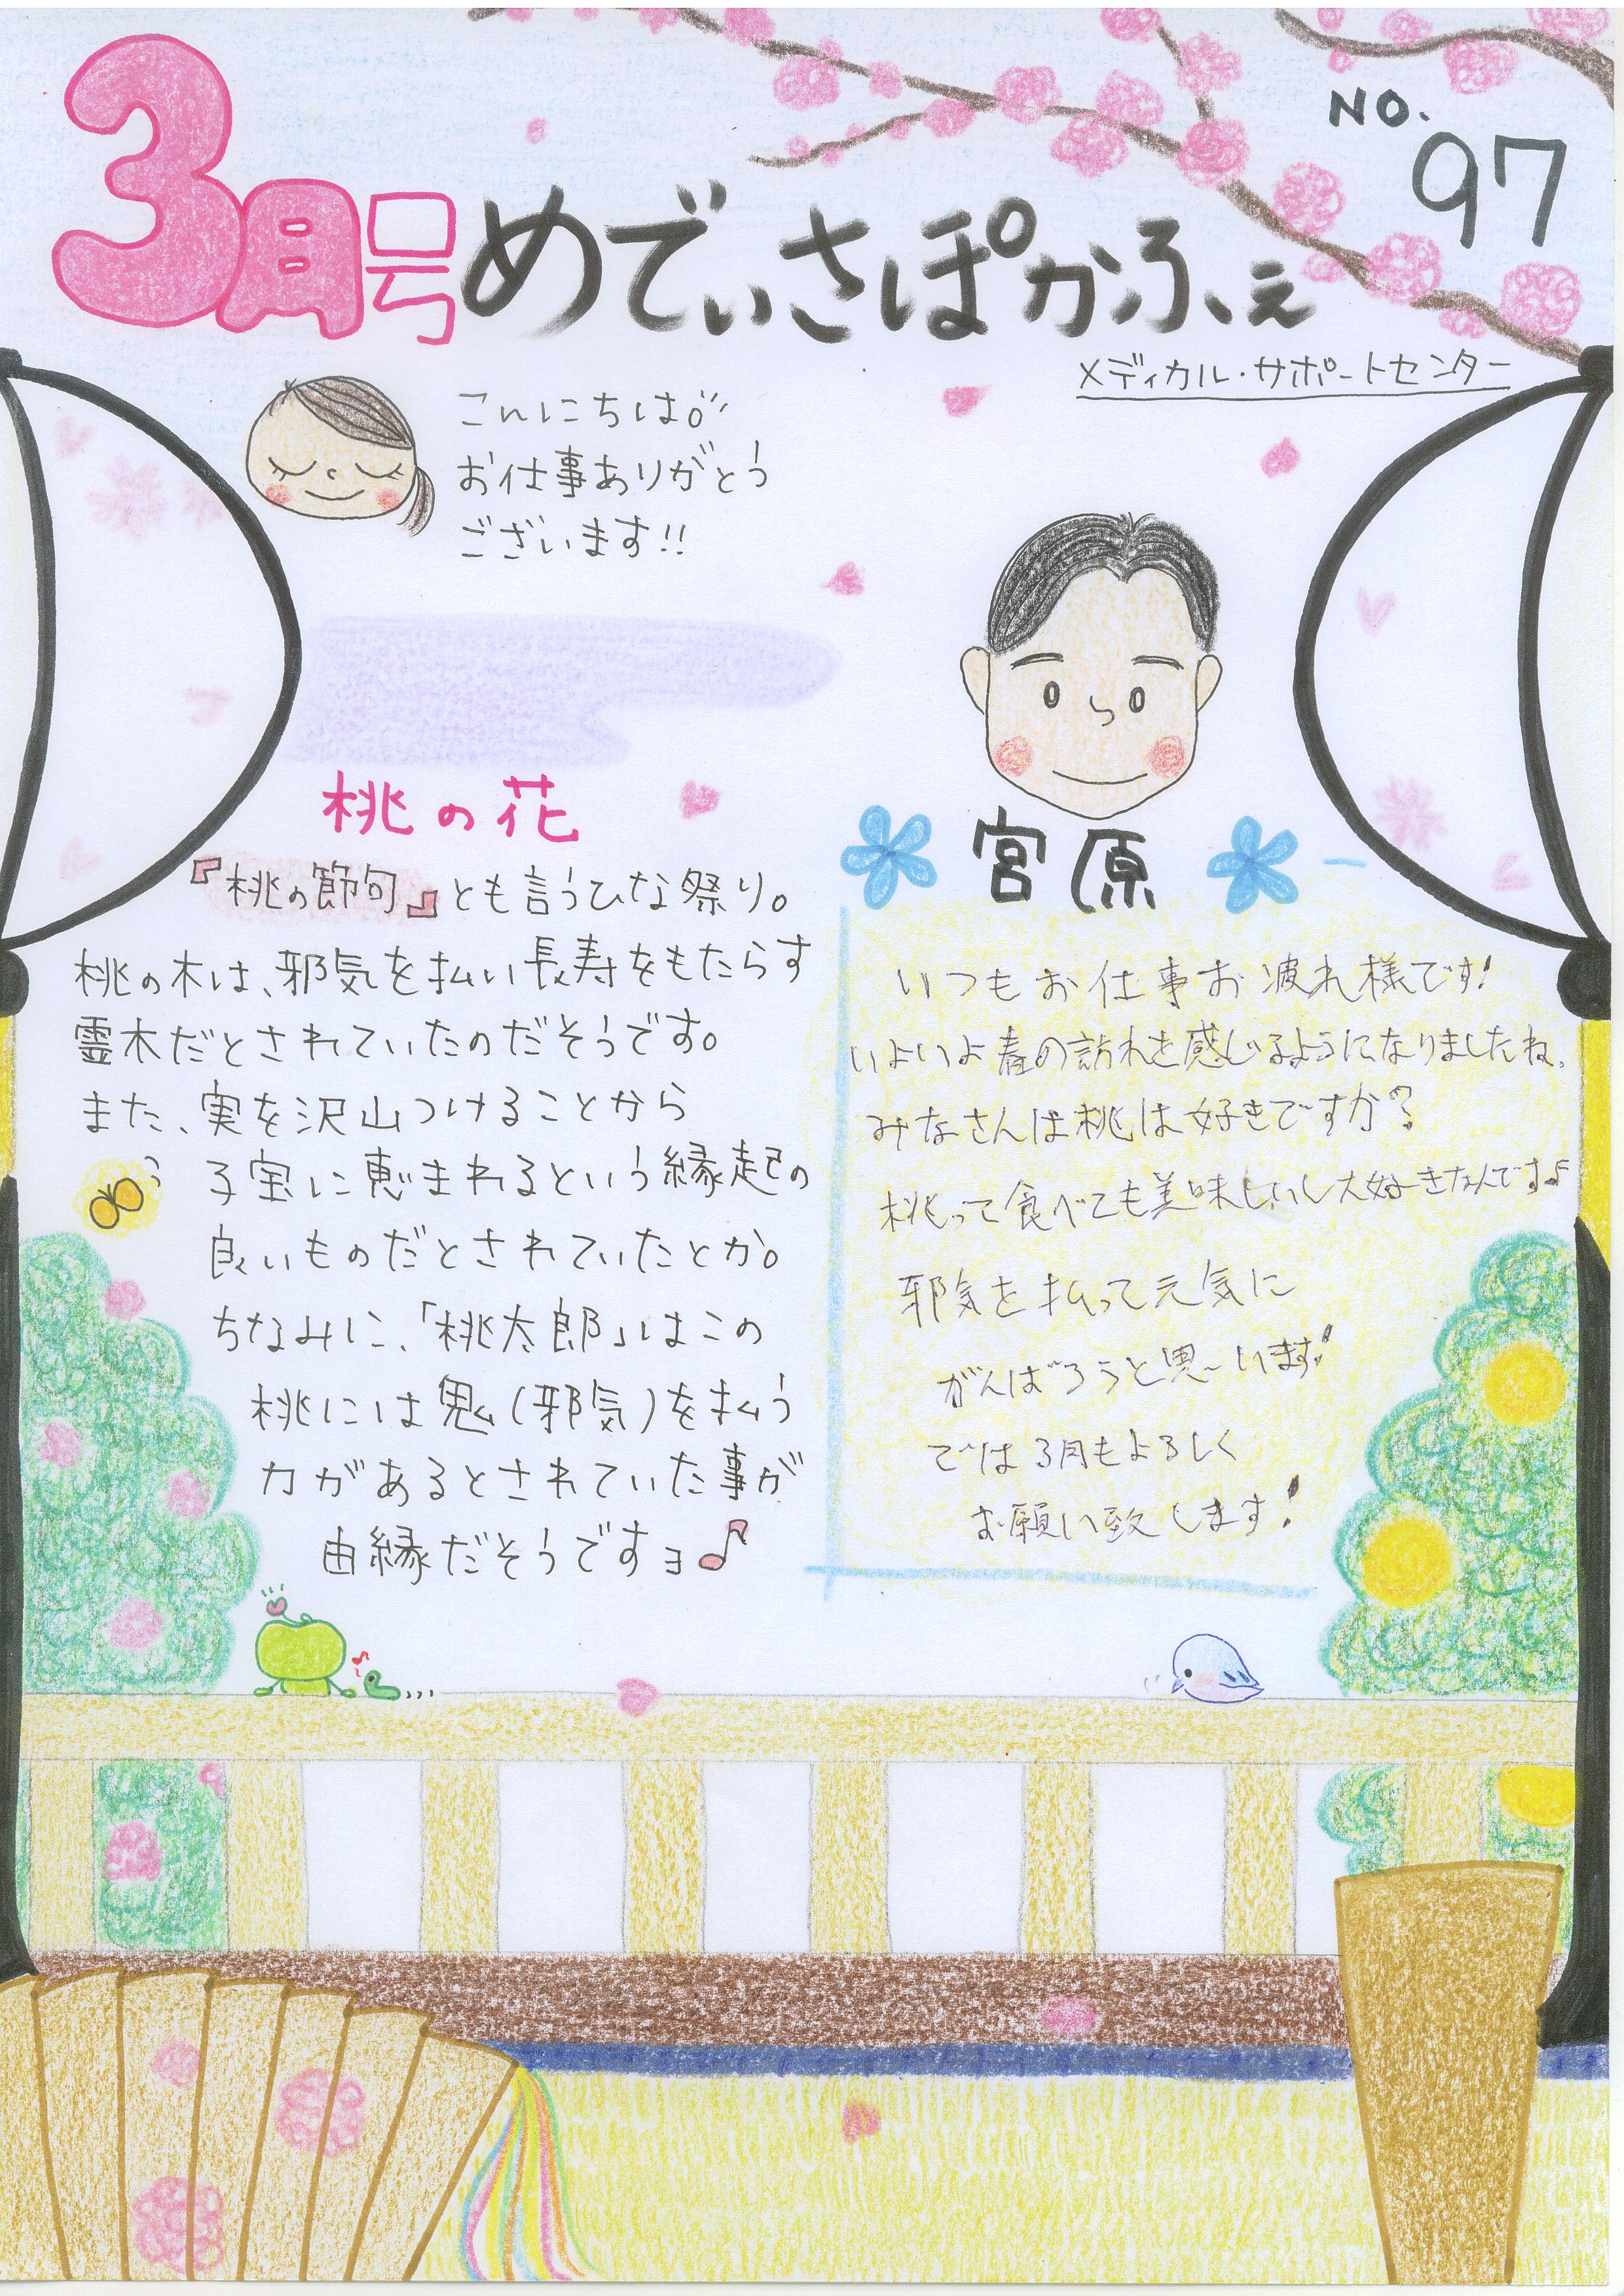 3月号 めでぃさぽかふぇ
NO.97
メディカル・サポートセンター
こんにちは。
お仕事ありがとう
ございます!!
桃の花
『桃の節句』とも言うひな祭り。
桃の木は、邪気を払い長寿をもたらす
霊木だとされていたのだそうです。
また、実を沢山つけることから
子宝に恵まれるという縁起の
良いものだとされていたとか。
ちなみに、「桃太郎」はこの
桃には鬼(邪気)を払う
力があるとされていた事が
由縁だそうですョ♪
宮原
いつもお仕事お疲れ様です!
いよいよ春の訪れを感じるようになりましたね。
みなさんは桃は好きですか?
桃って食べても美味しいし大好きなんです♪
邪気を払って元気に
がんばろうと思〜います!
では3月もよろしく
お願い致します!